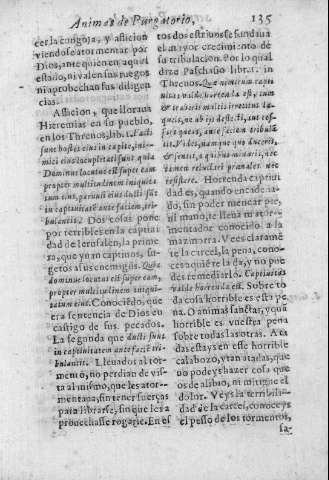 Animas de Purgatorio, 135
cer la congoja, y afliccion
viendose atormentar por
Dios, ante quien en aquel
estado, ni valen sus ruegos
ni aprobechan sus diligen
cias.
Afliccion, que lloraua
Hieremias en su pueblo,
en los Threnos, lib. 1. Facti
sunt hostes eius in capite, inimi
ci eius locupletati sunt, quia
Dominus locutus est super eam
propter multitudinem iniquita
tum eius, paruuli eius ducti sūt
in captiuitatē ante faciem, tri-
bulantis. Dos cosas pone
por terribles en la captiui
dad de Ierusalen, la prime
ra, que yuan captiuos, su-
getos a sus enemigos. Quia
dominus locutus est super eam,
propter multitudinem iniqui-
tatum eius. Conociēdo, que
era sentencia de Dios en
castigo de sus pecados.
La segunda que ducti sunt
in captiuitatem ante faciē tri-
bulantis. Lleuados al tor-
mento, no perdian de vis-
ta al mismo, que les ator-
mentaua, sin tener fuerças
para librarse, sin que les a
prouechasse rogarle. En es
tos dos estriuos se fundaua
el mayor crecimiento de
su tribulacion. Por lo qual
dize Paschasio libr. 1. in
Threnos. Quæ nimirum capti
uitas valde horrenda est, cum
&
quoque
quod
&
re
sistere. Horrenda captiui
dad es, quando encade na-
do, sin poder menear pie,
ni mano, te lleua tu ator-
mentador conocido a la
mazmorra. Vees claramē
te la carcel, la pena, cono-
ces a quiē te la da, y no pue
des remediarlo. Captiuitas
valde horrenda est. Sobre to
da cosa horrible es esta pe
na. O animas sanctas, y quā
horrible es vuestra pena
sobre todas las otras. A ta
das estays en esse horrible
calabozo, y tan atadas, que
no podeys hazer cosa que
os de aliuio, ni mitigue el
dolor. Veys la terribili-
dad de la carcel, conoceys
el pesso de los tormentos,
sa-